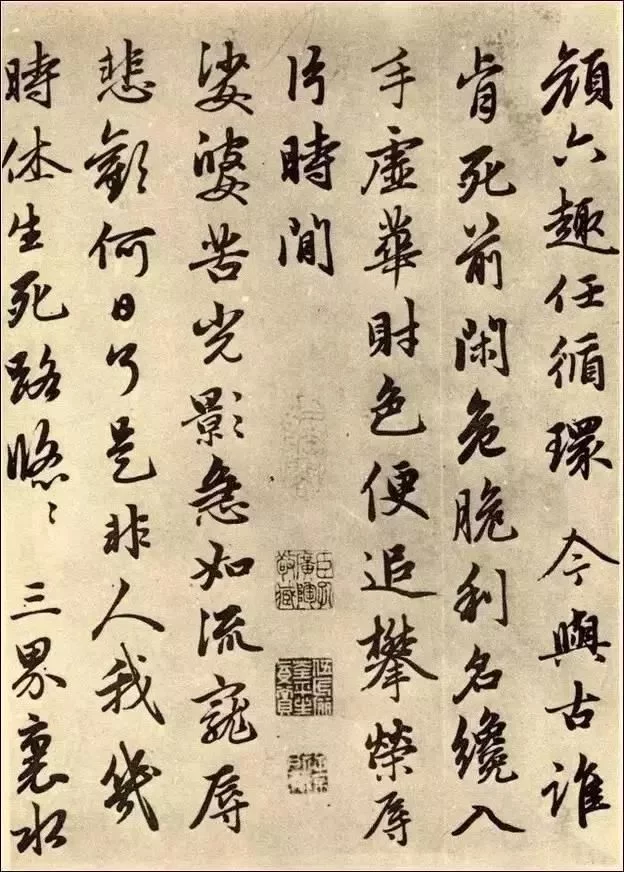 頋六趣任循環 今與古誰
肯死前閑危脆利名纔入
手虛華財色便追攀榮辱
片時間
娑婆苦光影急如流寵辱
悲歡何日了是非人我幾
時休生死路悠〻 三界裏水